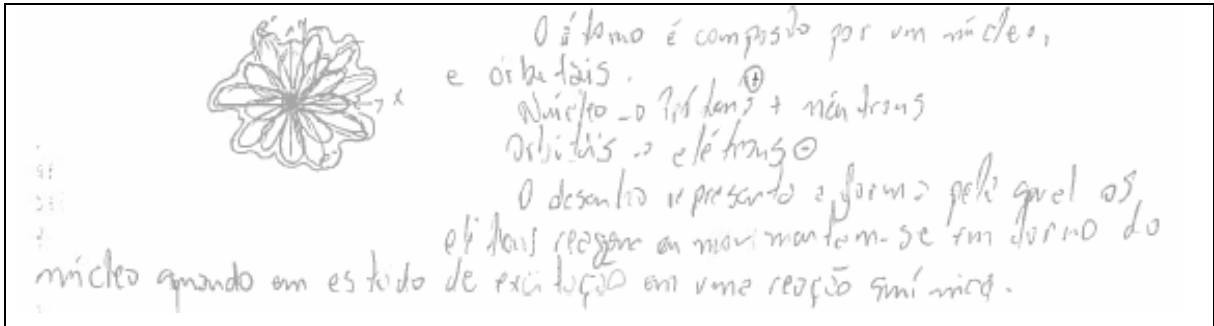 O átomo é composto por um núcleo,
e orbitais.
Núcleo → Prótons ⊕ + nêutrons
Orbitais → elétrons ⊖
O desenho representa a forma pela qual os
elétrons reagem ou movimentam-se em torno do
núcleo quando em estado de excitação em uma reação química.
e⁻ y
x